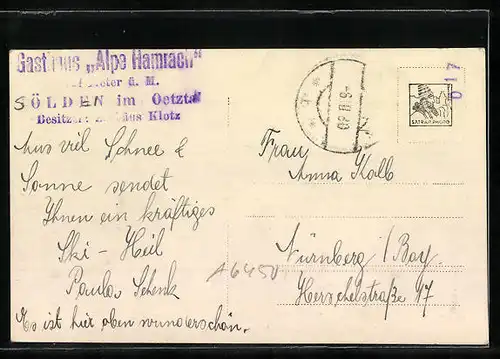 Gasthaus „Alpe Hamrach“
Meter ü. M.
SÖLDEN im Oetztal
Besitzer: Klotz
Aus viel Schnee &
Sonne sendet
Ihnen ein kräftiges
Ski-Heil
Paula Schenk
Es ist hier oben wunderschön.
A6450
Frau
Anna Kolb
Nürnberg / Bay.
Herschelstraße 17
SATRAP PHOTO
017